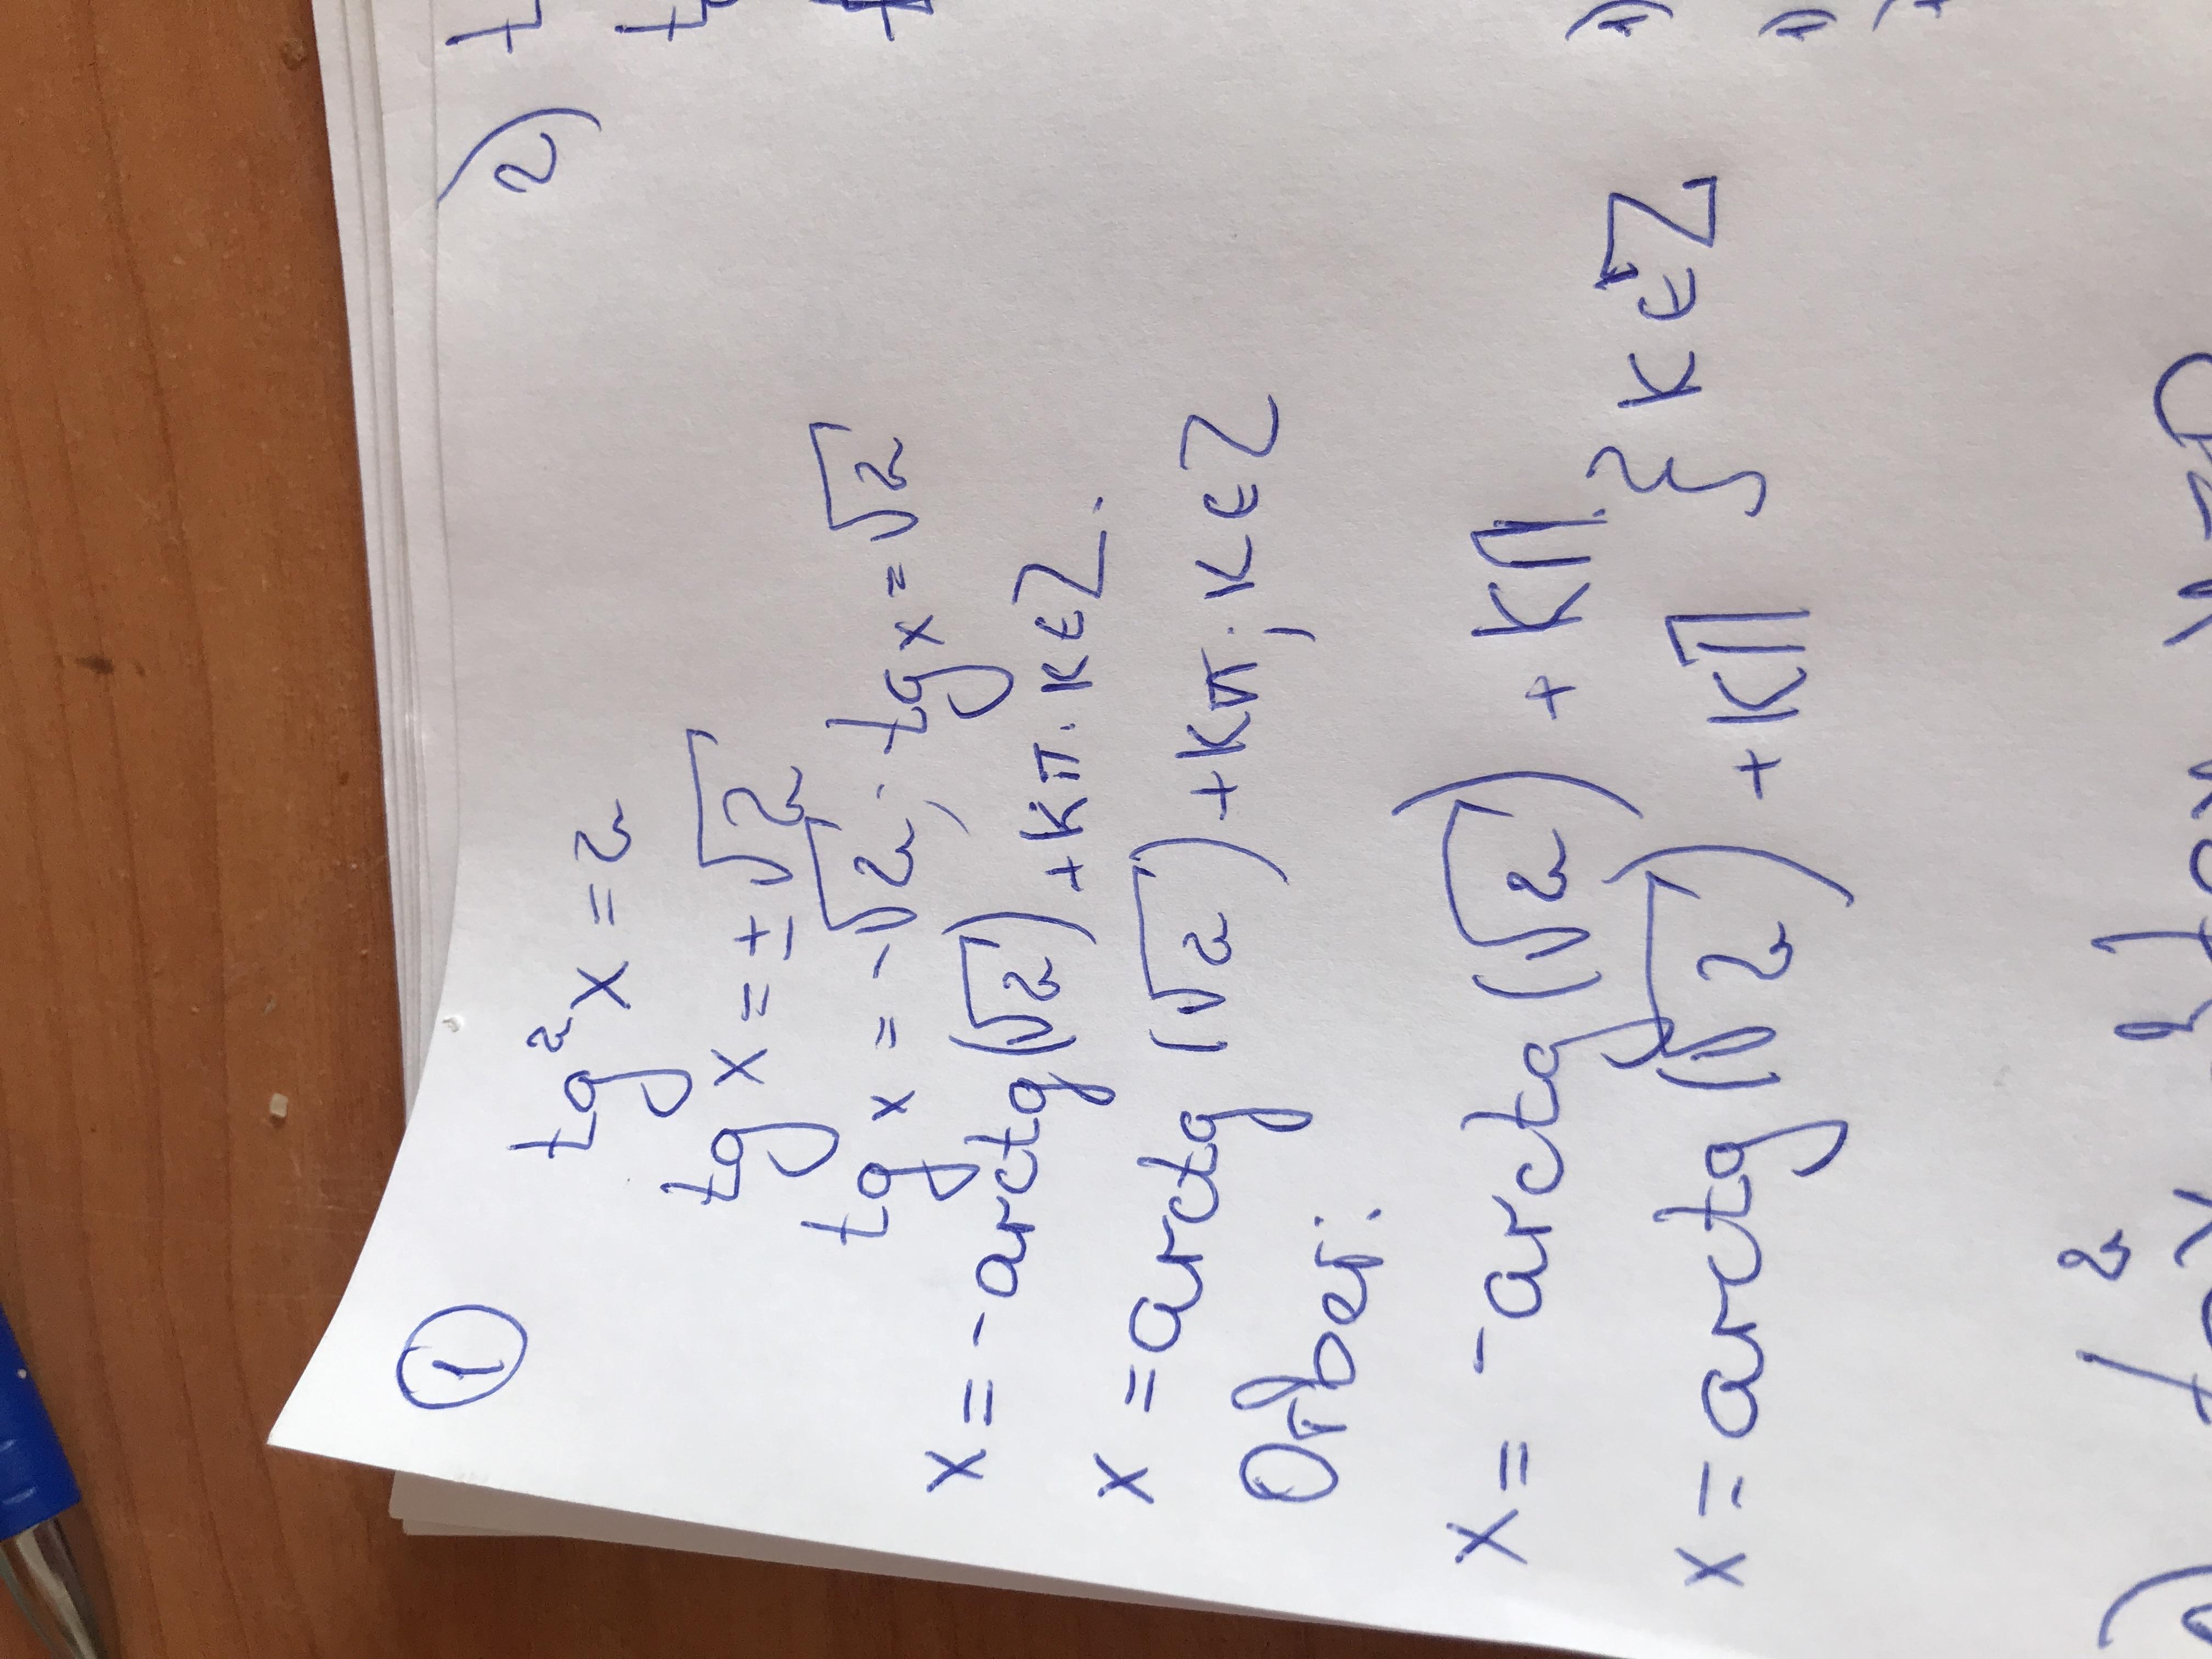 ①
tg²x = 2
tg x = ±√2
tg x = -√2; tg x = √2
x = -arctg(√2) + kπ. k∈Z.
x = arctg(√2) + kπ; k∈Z
Ответ:
x = -arctg(√2) + kπ
x = arctg(√2) + kπ } k∈Z
2)